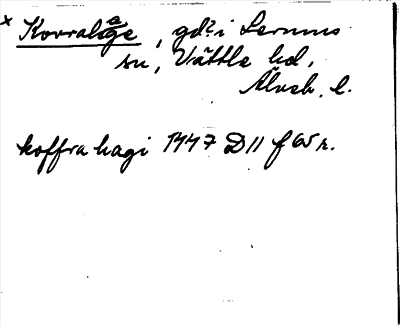 × Korralåge, gd? i Lerums
sn, Vättle hd,
Älvsb. l.
koffra hagi 1447 D 11 f 65 r.